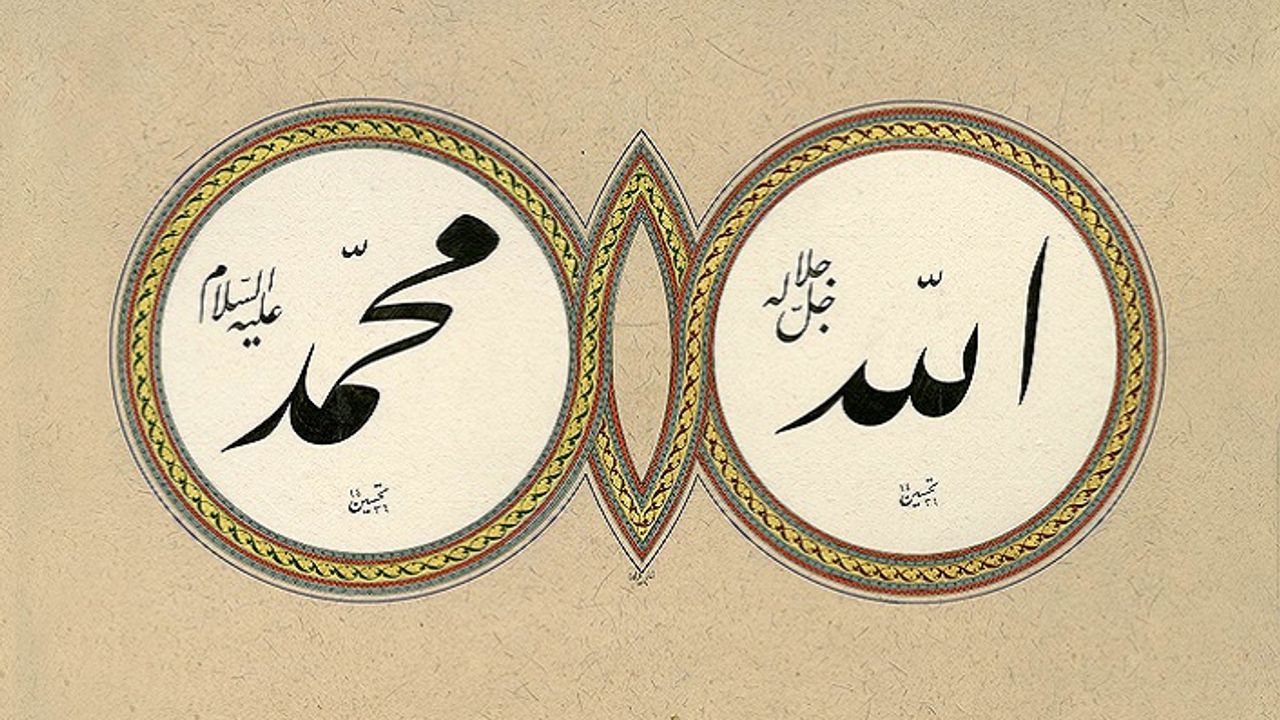 الله
جل جلاله
تحسين ١٤٣٦
محمّد
عليه السّلام
تحسين ١٤٣٦